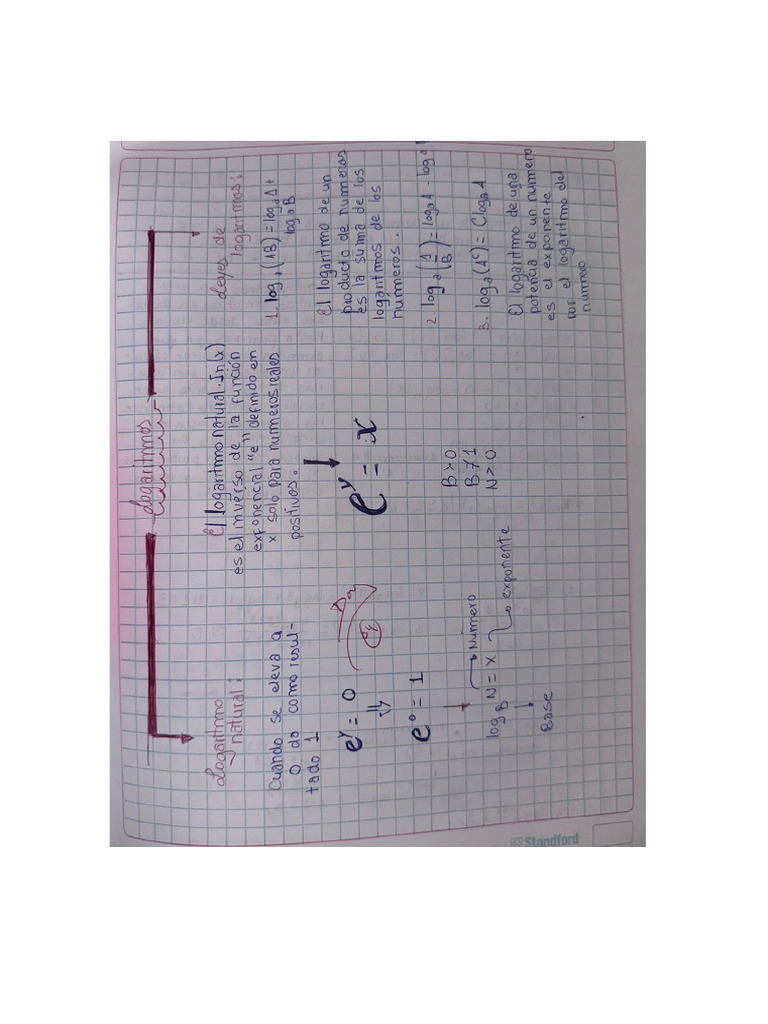 Logaritmos
Logaritmo
natural:
Cuando se eleva a
0 da como resul-
tado 1
eʸ = 0
⇓
e⁰ = 1
↓
Número
log_B N = x
exponente
Base
El logaritmo natural. In(x)
es el inverso de la función
exponencial "e" definido en
x solo para numeros reales
positivos.
↓
eʸ = x
B > 0
B ≠ 1
N > 0
Leyes de
logaritmos:
1. logₐ (AB) = logₐ A +
logₐ B
El logaritmo de un
producto de numeros
es la suma de los
logaritmos de los
numeros.
2. logₐ (A/B) = logₐ A - logₐ
3. logₐ (Aᶜ) = C logₐ A
El logaritmo de una
potencia de un numero
es el exponente
por el logaritmo del
numero
Standford